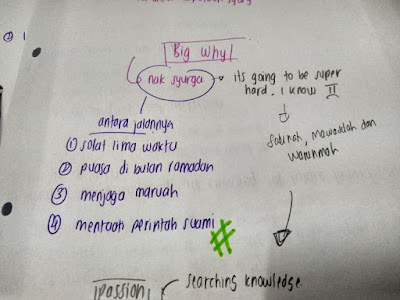 Big Why!
nak syurga
its going to be super
hard, I know
antara jalannya
① solat lima waktu
② puasa di bulan ramadan
③ menjaga maruah
④ mentaati perintah suami
#
Sakinah, mawaddah dan
warahmah
Passion
searching knowledge